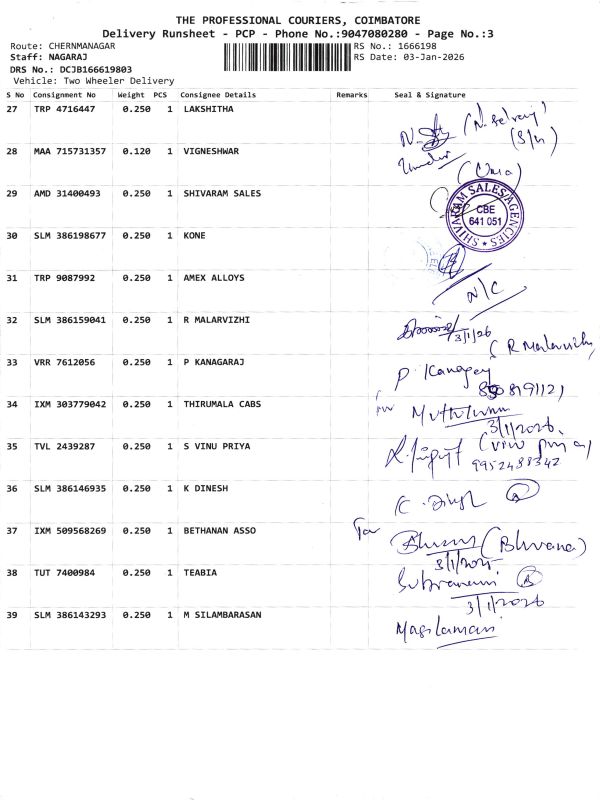 THE PROFESSIONAL COURIERS, COIMBATORE
Delivery Runsheet - PCP - Phone No.:9047080280 - Page No.:3
Route: CHERNMANAGAR RS No.: 1666198
Staff: NAGARAJ RS Date: 03-Jan-2026
DRS No.: DCJB166619803
Vehicle: Two Wheeler Delivery
S No Consignment No Weight PCS Consignee Details Remarks Seal & Signature
27 TRP 4716447 0.250 1 LAKSHITHA (N. Selvaraj)
(S/n)
28 MAA 715731357 0.120 1 VIGNESHWAR
(Uma)
29 AMD 31400493 0.250 1 SHIVARAM SALES
SHIVARAM SALES AGENCIES
CBE
641 051
30 SLM 386198677 0.250 1 KONE
31 TRP 9087992 0.250 1 AMEX ALLOYS N/C
32 SLM 386159041 0.250 1 R MALARVIZHI 3/1/26
(R Malarvizhi
33 VRR 7612056 0.250 1 P KANAGARAJ P. Kanagaraj
34 IXM 303779042 0.250 1 THIRUMALA CABS
3/1/2026
35 TVL 2439287 0.250 1 S VINU PRIYA
9952488342
36 SLM 386146935 0.250 1 K DINESH
37 IXM 509568269 0.250 1 BETHANAN ASSO For (Bhvana)
38 TUT 7400984 0.250 1 TEABIA
3/1/2026
39 SLM 386143293 0.250 1 M SILAMBARASAN Magilamani